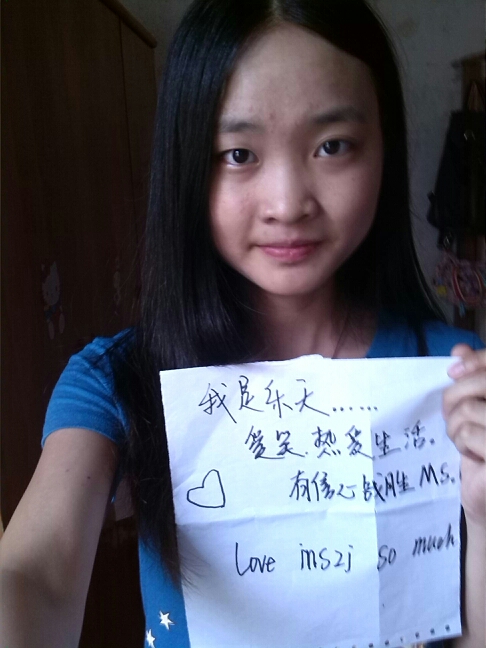 我是乐天......
爱笑.热爱生活。
有信心战胜MS.
Love ms2j so much